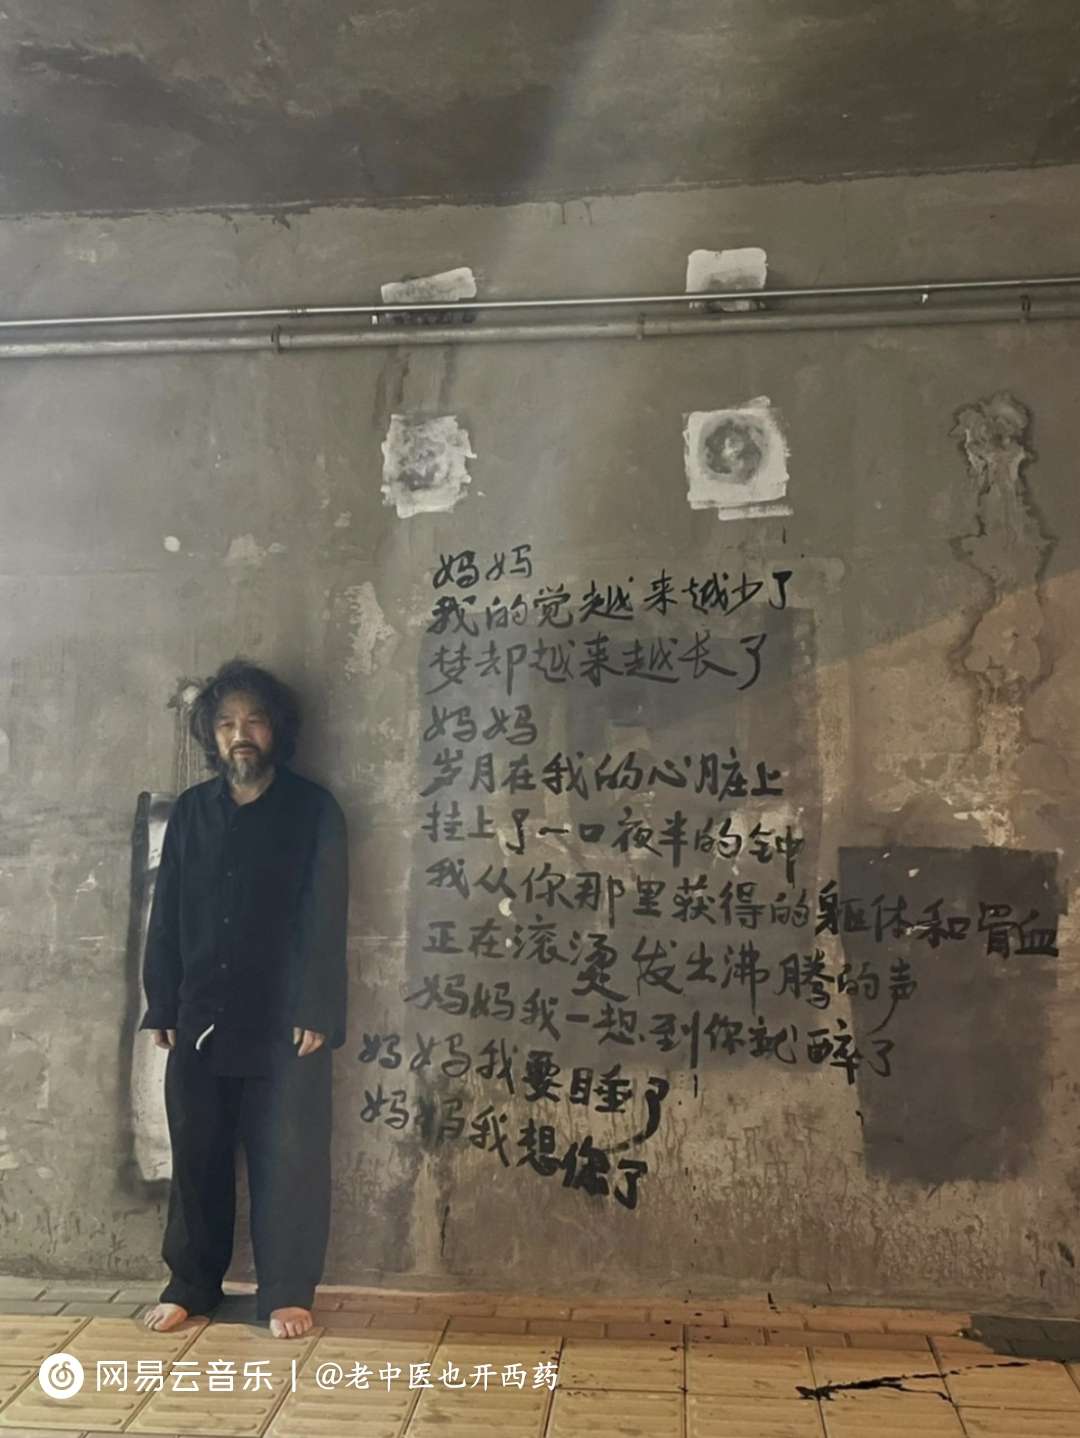 妈妈
我的觉越来越少了
梦却越来越长了
妈妈
岁月在我的心脏上
挂上了一口夜半的钟
我从你那里获得的躯体和骨血
正在滚烫发出沸腾的声
妈妈我一想到你就醉了
妈妈我要睡了
妈妈我想你了
网易云音乐 | @老中医也开西药